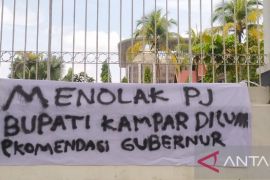 MENOLAK PJ
BUPATI KAMPAR DILUAR
RKOMENDASI GUBERNUR
ANTA